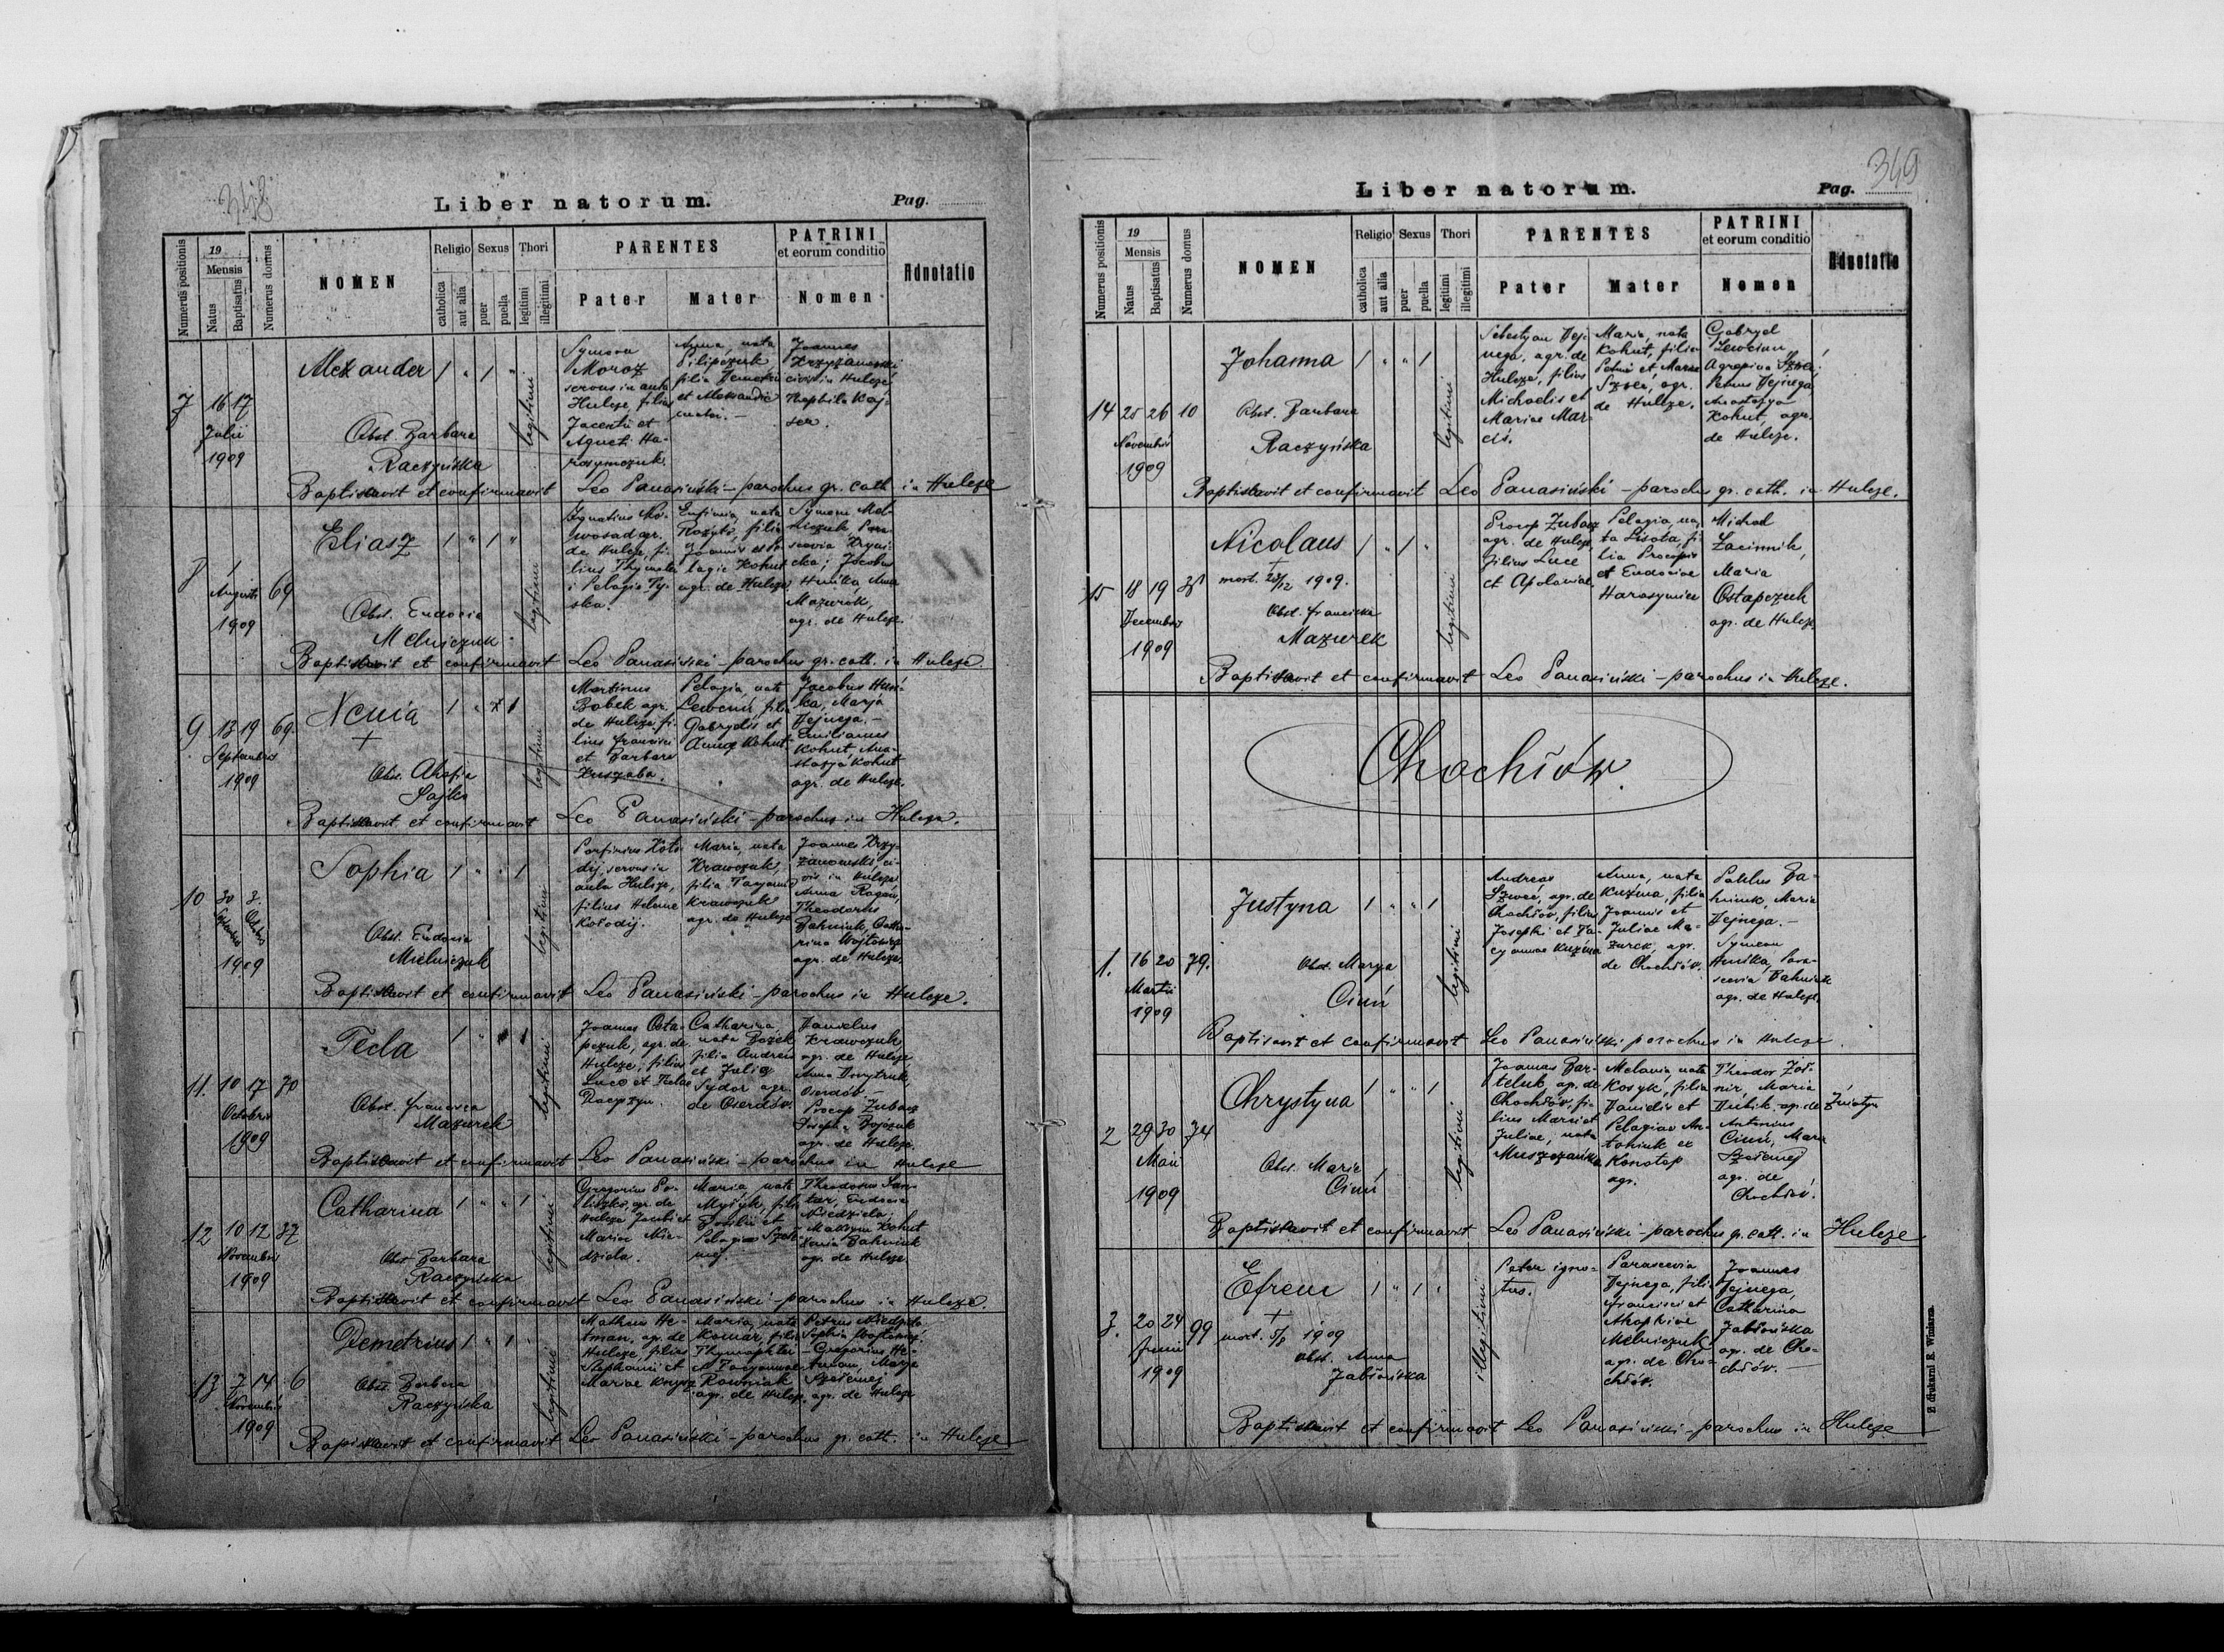 348
Liber natorum.
Pag.
Numerus positionis
19
Mensis
Natus
Baptisatus
Numerus domus
NOMEN
Religio
catholica
aut alia
Sexus
puer
puella
Thori
legitimi
illegitimi
PARENTES
Pater
Mater
PATRINI
et eorum conditio
Nomen
Adnotatio
7
16 17
Julii
1909
Alexander
Obst. Barbara
Raczyńska
legitimi
Symeon
Moroz
servus in aula
Hulcze, filius
Jacentii et
Agneti Ha-
rasymczuk.
Anna, nata
Pilipczuk
filia Demetrii
et Alexandrae
Joannes
Krzyżanowski
civis in Hulcze
Baptisavit et confirmavit Leo Panasiński - parochus gr. cath. in Hulcze
8
1
Augusti
1909
69
Eliasz
Obst. Eudocia
Melniczuk
legitimi
Ignatius
agr.
de Hulcze, fi-
lius
i Pelagie
Eufimia, nata
filia
Joannis et Pe-
lagie Kohut
agr. de Hulcze
Symeon Mel-
niczuk Para-
scevia
Jacobus
Hnitka, Anna
Mazurok,
agr. de Hulcze
Baptisavit et confirmavit Leo Panasiński - parochus gr. cath. in Hulcze.
9
13 19
Septembris
1909
69.
Xenia
Obst. Ahafia
Sajko
legitimi
Martinus
Babek agr.
de Hulcze, fi-
lius Francisci
et Barbara
Pelagia, nata
Lewciun, filia
Gabryelis et
Anna Kohut.
Jacobus Hni-
tka, Marja
Dejnega. -
Emilianus
Kohut, Ana-
stazya Kohut
agr. de Hulcze.
Baptisavit et confirmavit Leo Panasiński - parochus in Hulcze.
10
30 3.
Septembris Octobris
1909
Sophia
Obst. Eudocia
Mielniczuk
legitimi
Porfirius Koło-
dij, servus in
aula Hulcze,
filius Helenae
Kołodij.
Maria, nata
Krawczuk,
filia
Krawczuk
agr. de Hulcze
Joannes Krzy-
żanowski, ci-
vis in Hulcze
Anna
Theodorus
Bahniuk, Catha-
rina Wójtowicz
agr. de Hulcze.
Baptisavit et confirmavit Leo Panasiński - parochus in Hulcze.
11.
10 17
Octobris
1909
70
Tecla
Obst. Francisca
Mazurek
legitimi
Joannes Osta-
pczuk, agr. de
Hulcze, filius
Luce et Teclae
Catharina,
nata
filia Andreae
et Julia
Sydor agr.
de Oserdów.
Danielus
Krawczuk,
agr. de Hulcze
Anna Dmytruk,
Oserdów. -
Procop Zubacz
agr. de Hulcze.
Baptisavit et confirmavit Leo Panasiński - parochus in Hulcze
12
10 12
Novembris
1909
37
Catharina
Obst. Barbara
Raczyńska
legitimi
Gregorius
agr. de
Hulcze Jacobi et
Mariae Nie-
dziela.
Maria, nata
filia
Basilii et
Pelagiae
Theodorus
Eudocia
Niedziela,
Maksym Kohut
Xenia Bahniuk
agr. de Hulcze
Baptisavit et confirmavit Leo Panasiński - parochus in Hulcze.
13
7 14
Novembris
1909
6
Demetrius
Obst. Barbara
Raczyńska
legitimi
Matheus He-
tman, agr. de
Hulcze, filius
Stephani et
Mariae
Maria, nata
Komar, filia
et Tacyannae
Rowniak
agr. de Hulcze.
Petrus
Sophia
- Gregorius He-
tman, Marya
agr. de Hulcze
Baptisavit et confirmavit Leo Panasiński - parochus gr. cath. in Hulcze
349
Liber natorum.
Pag.
Numerus positionis
19
Mensis
Natus
Baptisatus
Numerus domus
NOMEN
Religio
catholica
aut alia
Sexus
puer
puella
Thori
legitimi
illegitimi
PARENTES
Pater
Mater
PATRINI
et eorum conditio
Nomen
Adnotatio
14
25 26
Novembris
1909
10
Johanna
Obst. Barbara
Raczyńska
legitimi
Sebestyan Dej-
nega, agr. de
Hulcze, filius
Michaelis et
Mariae Mar-
ciś.
Maria, nata
Kohut, filia
Petri et Mariae
Szwec, agr.
de Hulcze.
Gabryel
Lewciun,
Agrepina Szwec,
Petrus Dejnega,
Anastazya
Kohut, agr.
de Hulcze.
Baptisavit et confirmavit Leo Panasiński - parochus gr. cath. in Hulcze.
15
18 19
Decembris
1909
Nicolaus
mort. 28/12 1909.
Obst. Franciska
Mazurek
legitimi
Procop Zubacz
agr. de Hulcze,
filius Luce
et Apoloniae
Pelagia, na-
ta Lisota, fi-
lia Procopii
et Eudociae
Harasymiec
Michael
Zacinnik,
Maria
Ostapczuk
agr. de Hulcze
Baptisavit et confirmavit Leo Panasiński - parochus in Hulcze.
Chochłów.
1.
16 20
Martii
1909
79.
Justyna
Obst. Marya
Ciuń
legitimi
Andreas
Szwec, agr. de
Chochłów, filius
Josephi et Ta-
cyannae Kuzma
Anna, nata
Kuzma, filia
Joannis et
Juliae Ma-
zurek, agr.
de Chochłów.
Pahlus Ba-
hniuk, Maria
Dejnega. -
Symeon
Hnitka, Para-
scevia Bahniuk
agr. de Hulcze.
Baptisavit et confirmavit Leo Panasiński parochus in Hulcze.
2
29 30
Maii
1909
74
Chrystyna
Obst. Maria
Ciuń
legitimi
Joannes Bar-
teluk, ap. de
Chochłów, fi-
lius Marci et
Juliae, nata
Melania, nata
Kosyk, filia
Danielis et
Pelagiae An-
toniuk ex
Konotop
agr.
Theodor Żoł-
nir, Maria
Dubik, agr. de Żniatyn
Antonius
Ciuń, Maria
agr. de
Chochłów.
Baptisavit et confirmavit Leo Panasiński - parochus gr. cath. in Hulcze
3.
20 24
Junii
1909
99
Efrem
mort. 5/8 1909
Obst. Anna
Jabłońska
illegitimi
Pater igno-
tus.
Parascevia
Dejnega, filia
Francisci et
Ahaphiae
Melniczuk
agr. de Cho-
chłów.
Joannes
Dejnega,
Catharina
Jabłońska
agr. de Cho-
chłów. -
Baptisavit et confirmavit Leo Panasiński - parochus in Hulcze
Z drukarni S. Winiarza.